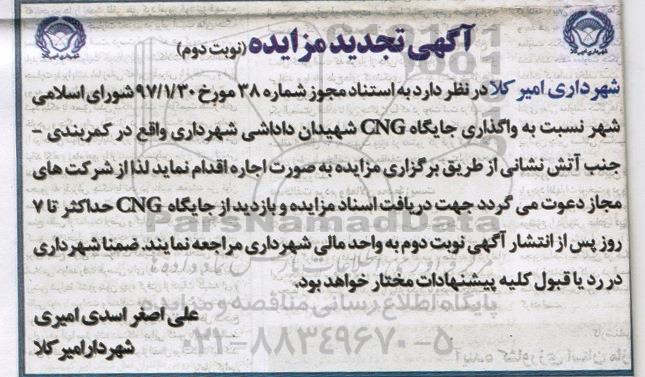 آگهی تجدید مزایده (نوبت دوم)
شهرداری امیرکلا در نظر دارد به استناد مجوز شماره ۳۸ مورخ ۹۷/۱/۳۰ شورای اسلامی
شهر نسبت به واگذاری جایگاه CNG شهیدان داداشی شهرداری واقع در کمربندی -
جنب آتش نشانی از طریق برگزاری مزایده به صورت اجاره اقدام نماید لذا از شرکت های
مجاز دعوت می گردد جهت دریافت اسناد مزایده و بازدید از جایگاه CNG حداکثر تا ۷
روز پس از انتشار آگهی نوبت دوم به واحد مالی شهرداری مراجعه نمایند. ضمنا شهرداری
در رد یا قبول کلیه پیشنهادات مختار خواهد بود.
علی اصغر اسدی امیری
شهردار امیرکلا
ParsNamadData
پایگاه اطلاع رسانی مناقصه و مزایده
۰۲۱-۸۸۳۴۹۶۷۰-۵